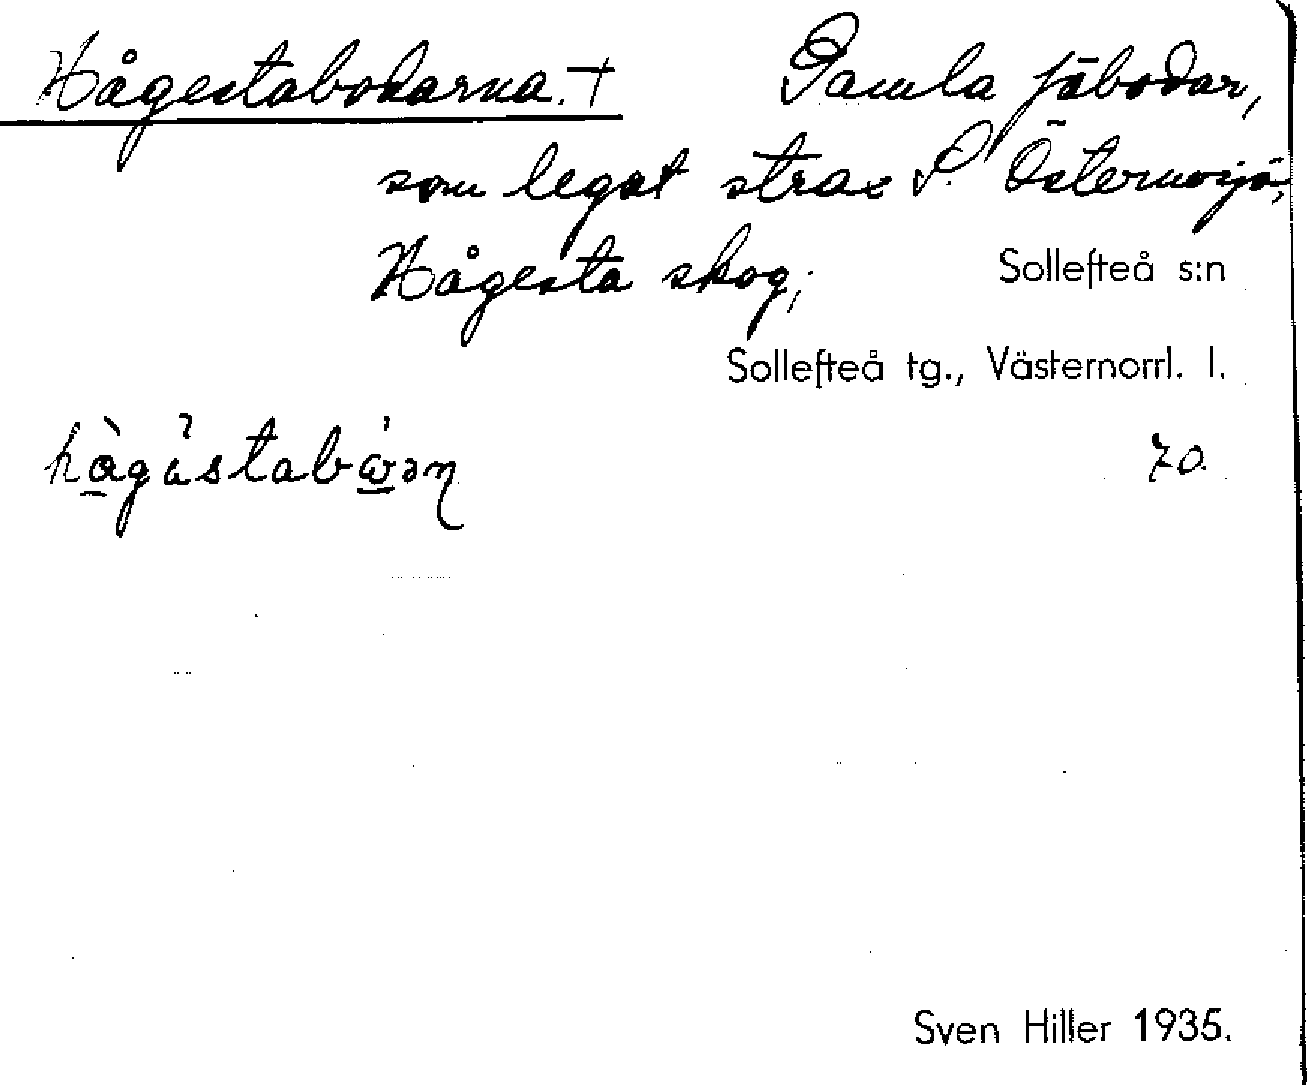 Hågestabodarna. † Gamla fäbodar,
som legat strax S. Östermosjö,
Hågesta skog; Sollefteå s:n
Sollefteå tg., Västernorrl. l.
70.
Sven Hiller 1935.